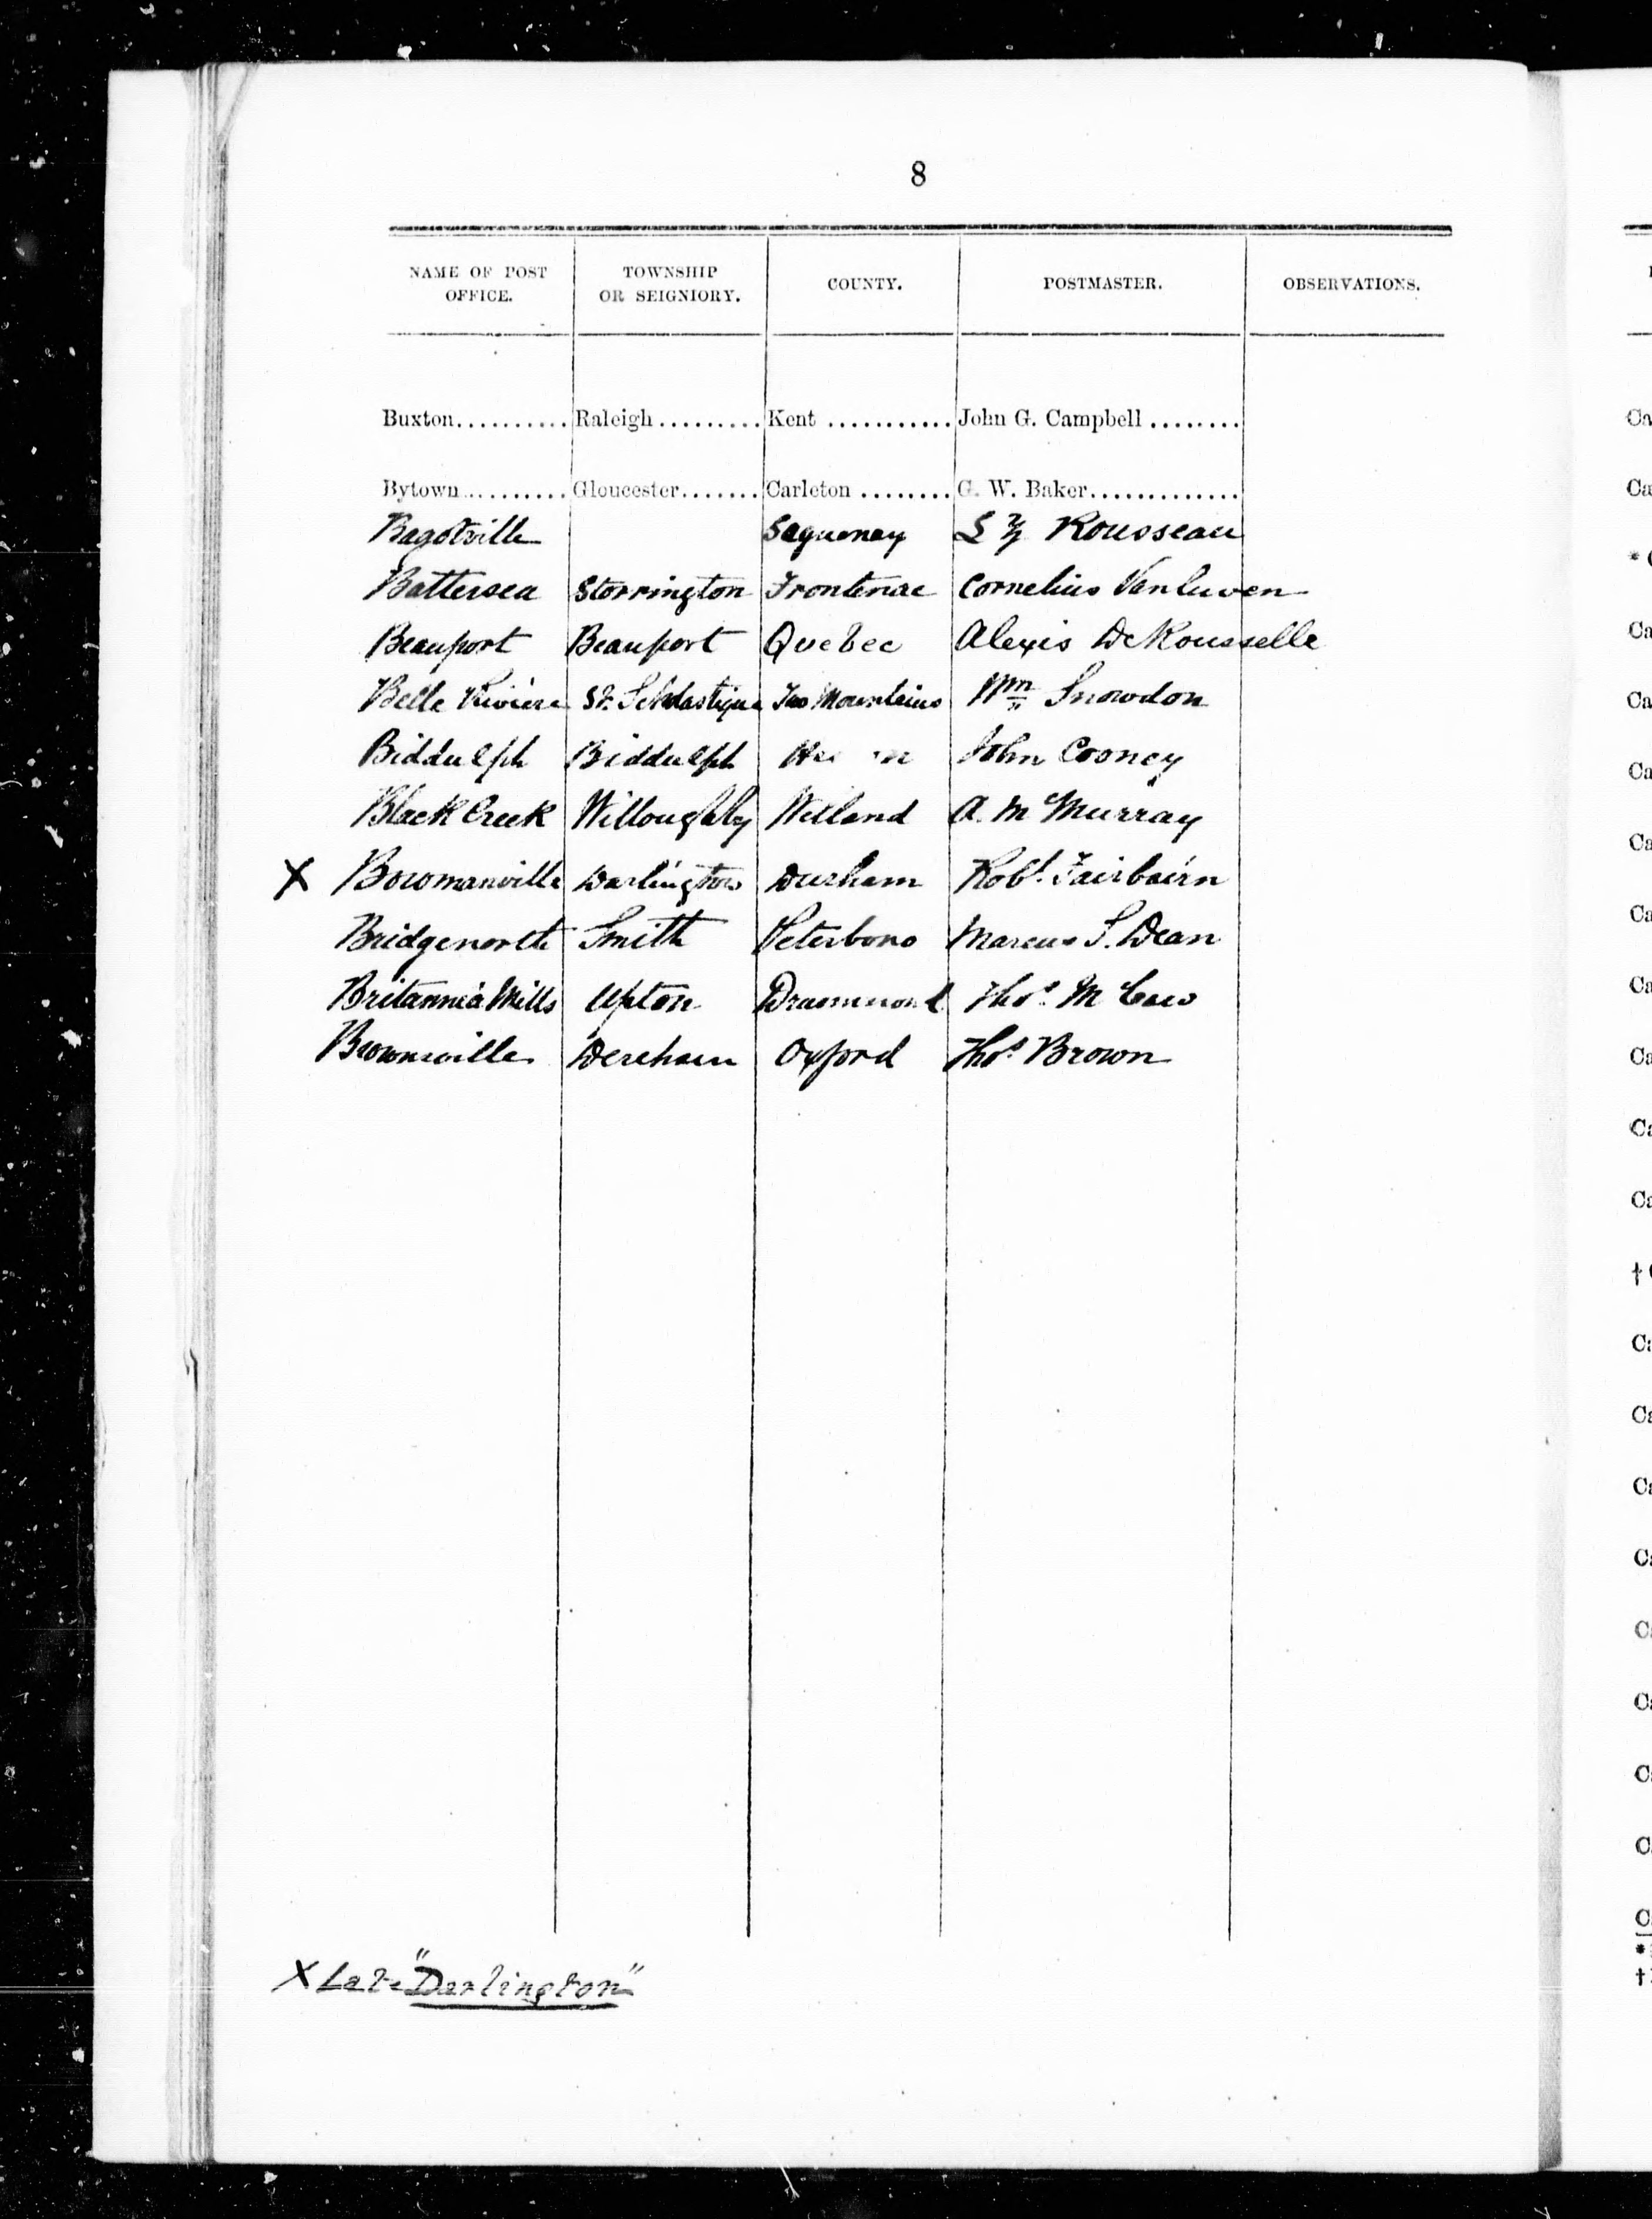 8
NAME OF POST OFFICE. TOWNSHIP OR SEIGNIORY. COUNTY. POSTMASTER. OBSERVATIONS.
Buxton.......... Raleigh......... Kent ........... John G. Campbell ........
Bytown......... Gloucester....... Carleton ........ G. W. Baker.............
Bagotville Saguenay L Z Rousseau
Battersea Storrington Frontenac Cornelius VanLuven
Beauport Beauport Quebec Alexis DeRousselle
Belle Rivière St. Scholastique Two Mountains Wm Snowdon
Biddulph Biddulph John Cooney
Black Creek Willoughby Welland A. McMurray
X Bowmanville Darlington Durham Robt. Fairbairn
Bridgenorth Smith Peterboro Marcus S. Dean
Britannia Mills Upton Drummond Thos. McCaw
Brownsville Dereham Oxford Thos Brown
X Late "Darlington"